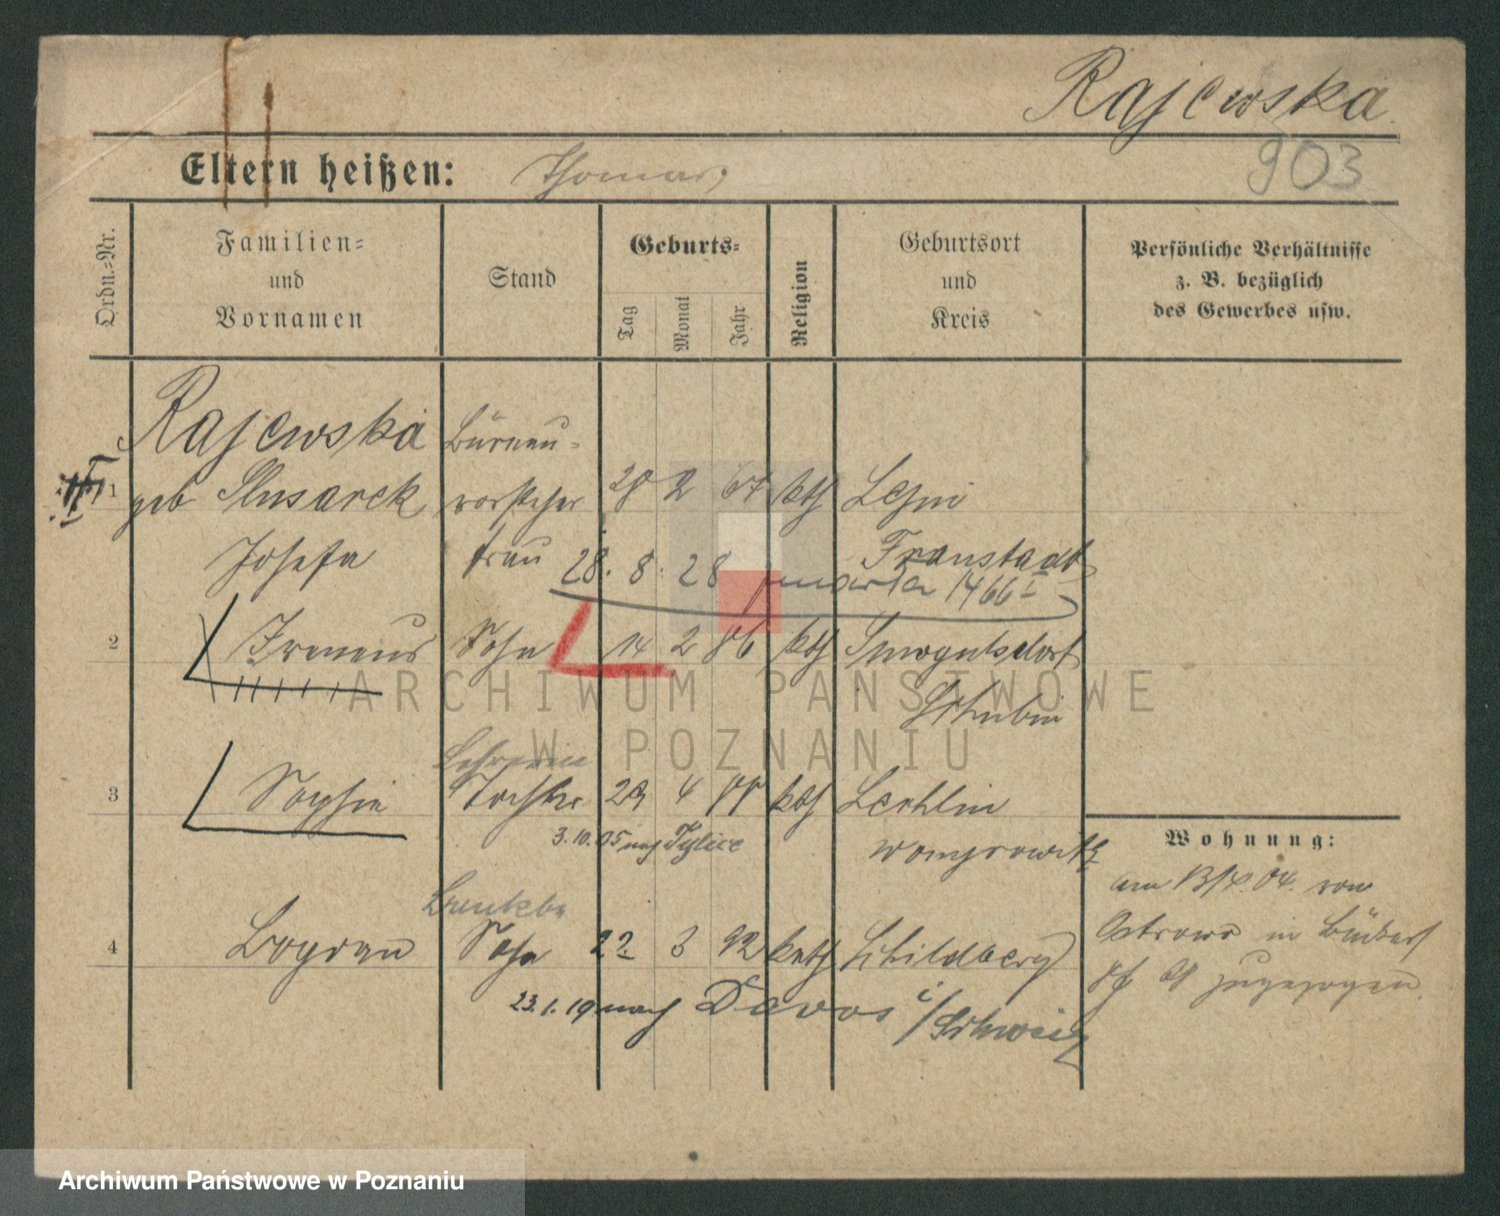 Rajewska
903
Eltern heißen: Thomas
Ordn.=Nr.
Familien=
und
Vornamen
Stand
Geburts=
Tag
Monat
Jahr
Religion
Geburtsort
und
Kreis
Persönliche Verhältnisse
z. B. bezüglich
des Gewerbes usw.
Rajewska Büreau-
1 geb Slusarek vorsteher 28 2 67 kth
Josefa frau Fraustadt
28. 8. 28 zmarła 1466
2 Ireneus Sohn 14 2 86 kth Smogulsdorf
Schubin
Lehrerin
3 Sophie Tochter 29 4 88 kth Lechlin
3.10.05 nach Wongrowitz
4 Bogdan Sohn 22 3 92 kath Schildberg
23.1.19 nach Davos i/Schweiz
Wohnung:
am 13/X. 04. von
Ostrowo in
zugezogen.
ARCHIWUM PAŃSTWOWE
W POZNANIU
Archiwum Państwowe w Poznaniu